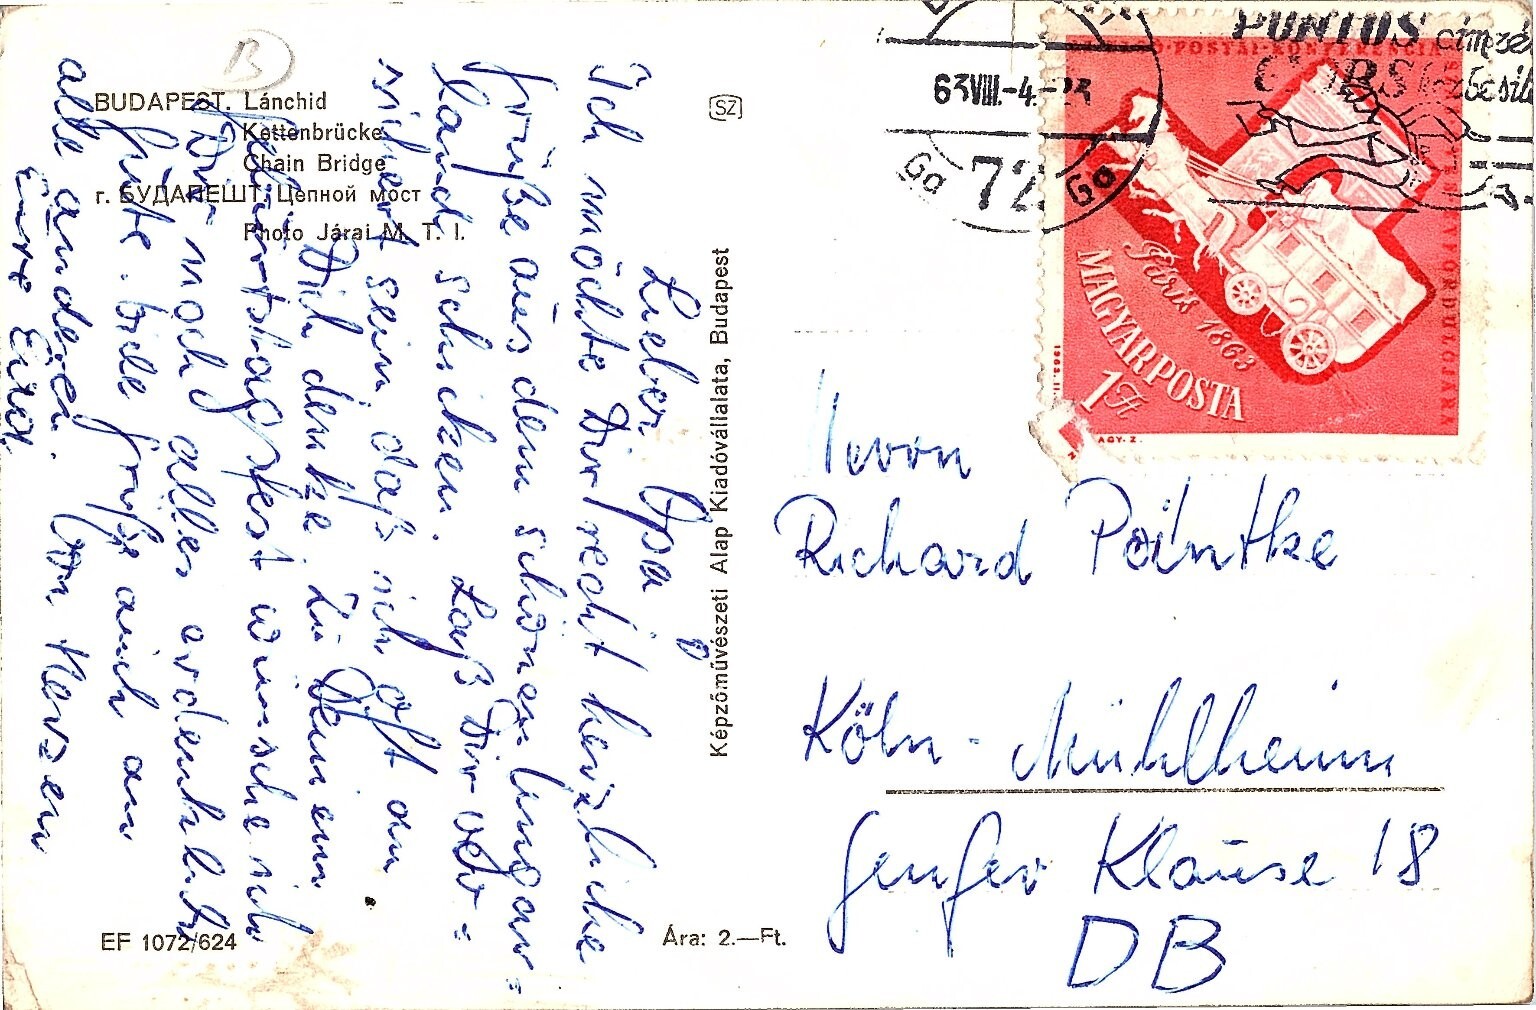 BUDAPEST. Lánchid
Kettenbrücke
Chain Bridge
г. БУДАПЕШТ, Цепной мост
Photo Járai M. T. I.
SZ
B
Lieber Opa
Ich möchte Dir recht herzliche
Grüße aus dem schönen Ungar=
land schicken. Laß Dir ver=
sichert sein, daß ich oft an
Dich denke. Zu Deinem
Geburtstagsfest wünsche ich
Dir noch alles erdenklich
Gute. bitte grüße auch an
alle anderen. Von Herzen
Eure
Képzőművészeti Alap Kiadóvállalata, Budapest
EF 1072/624
Ára: 2.—Ft.
63 VIII.-4.-23
72
PONTOS címzés
POSTAI-KONFERENCIA
Páris 1863
MAGYAR POSTA
1 Ft
Herrn
Richard Pointke
Köln - Mühlheim
Genfer Klause 18
DB